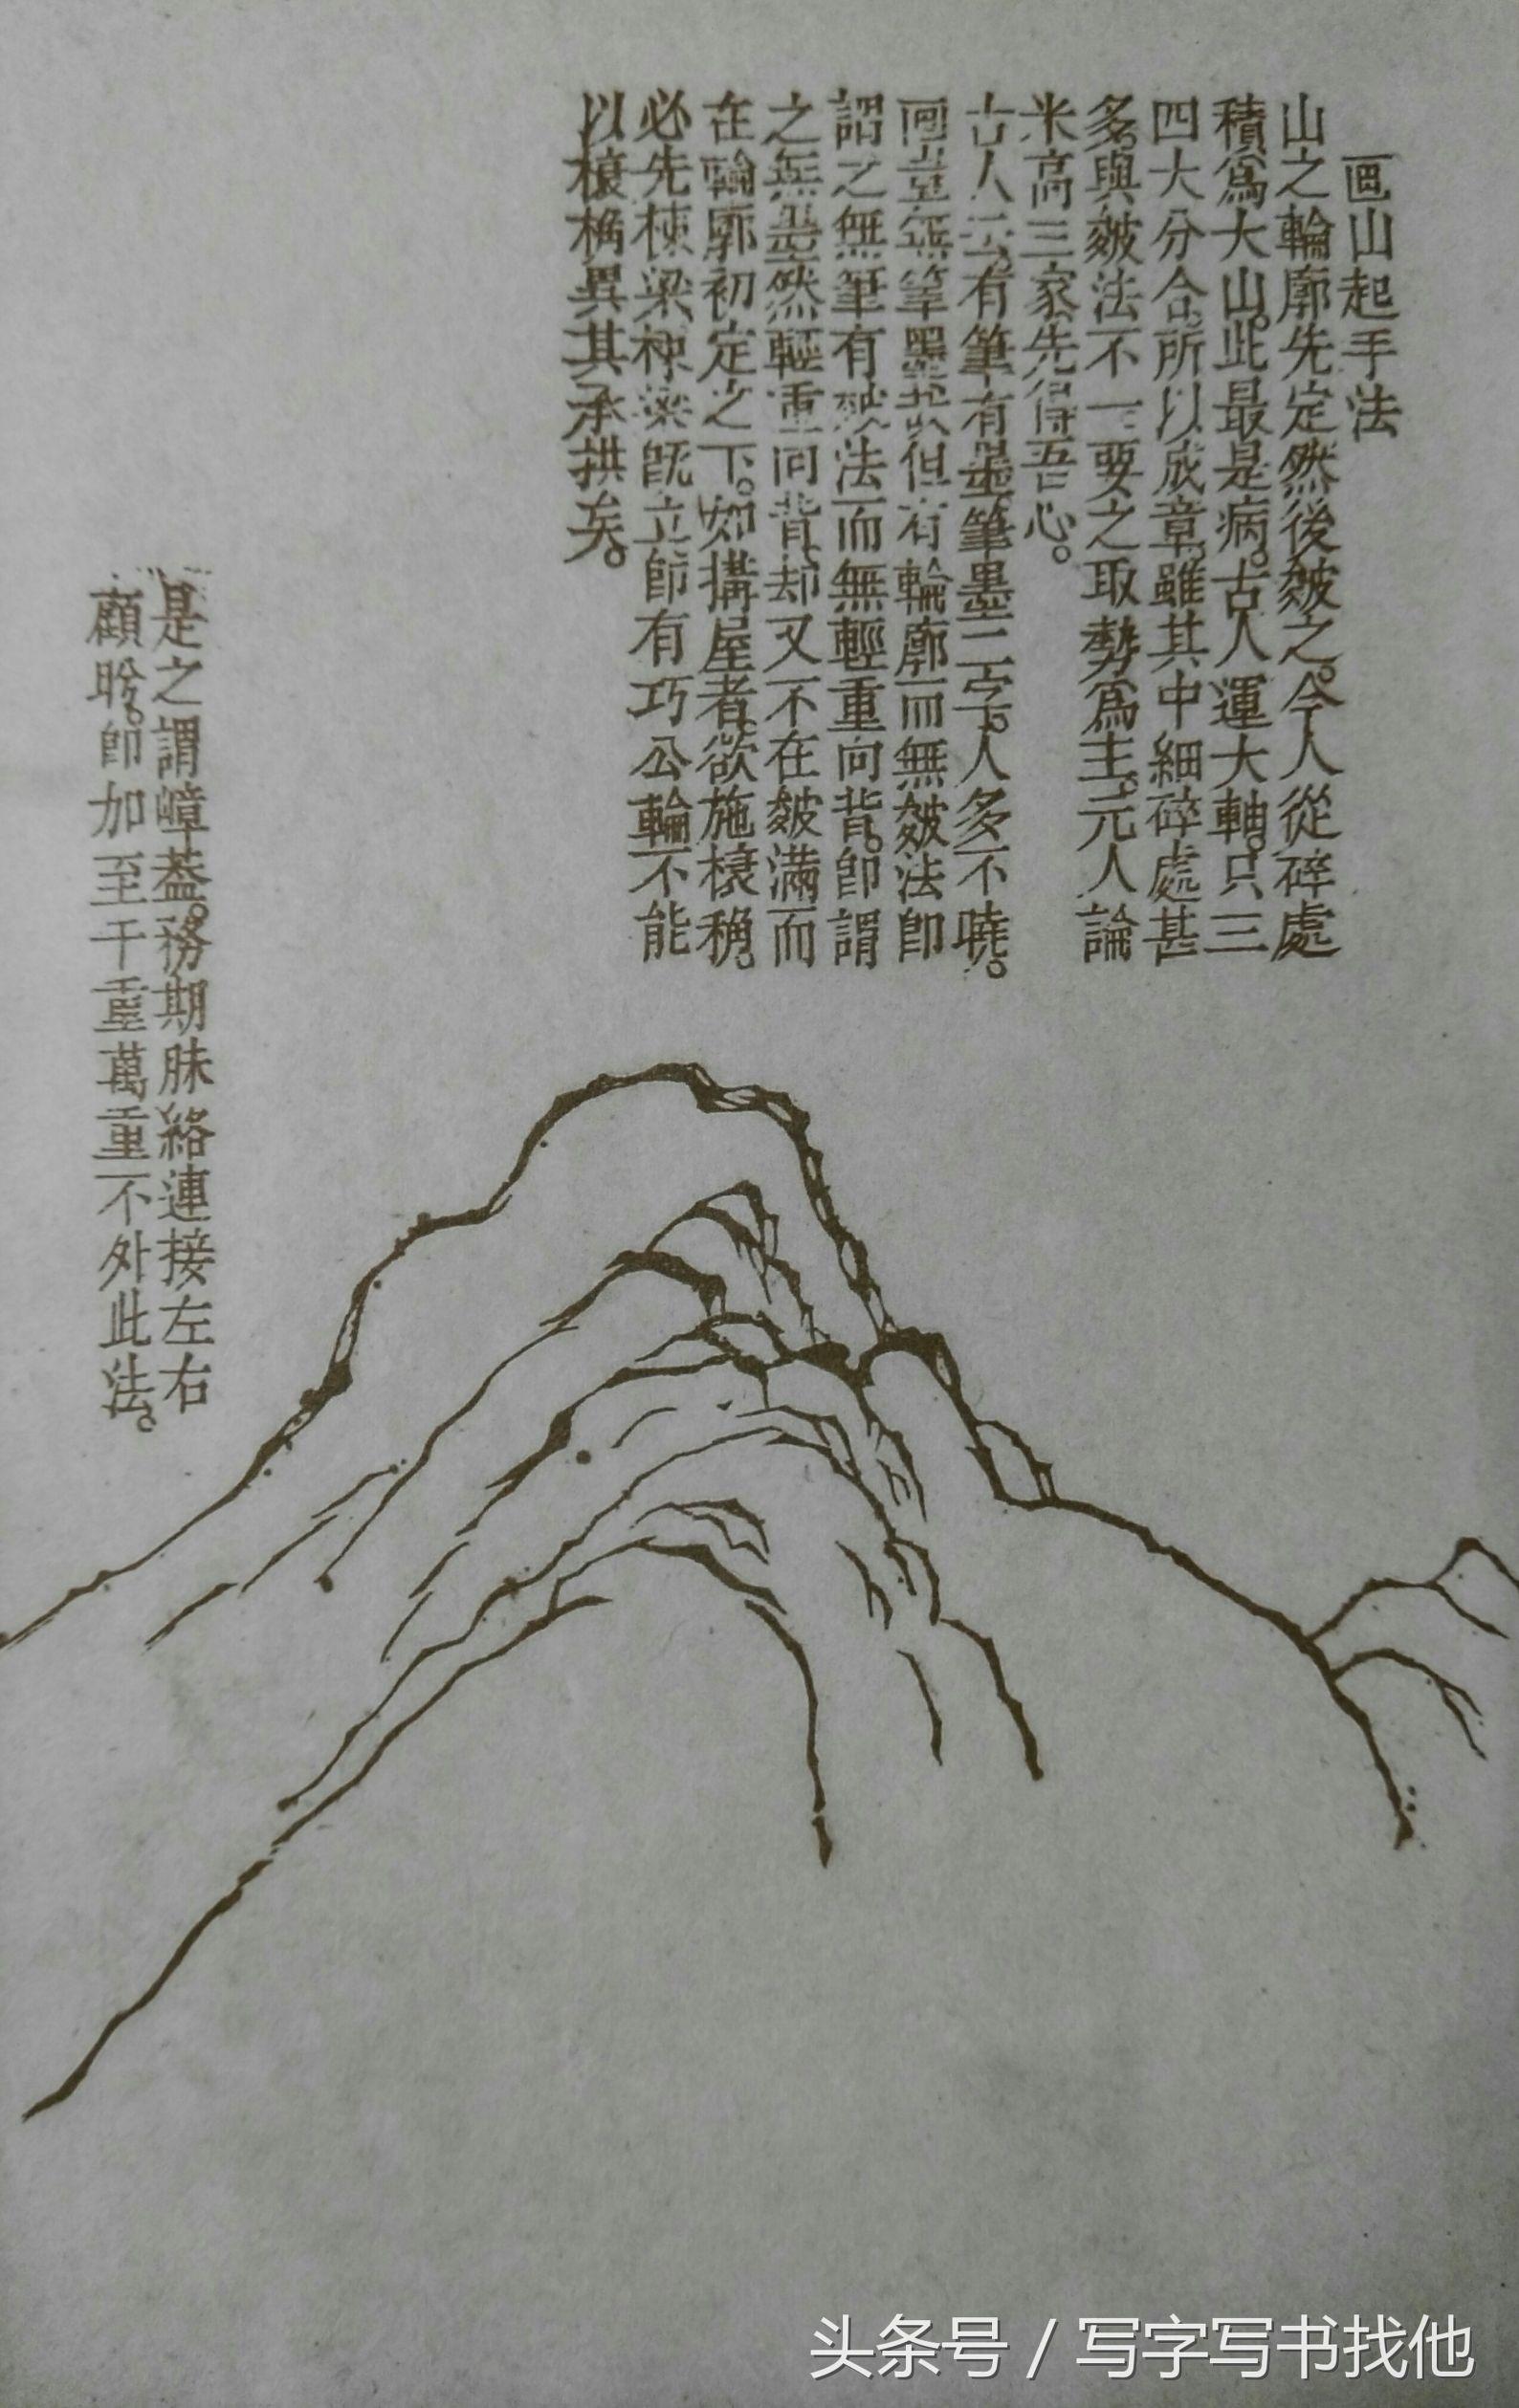 画山起手法
山之輪廓先定然後皴之。今人從碎處
積爲大山。此最是病。古人運大軸。只三
四大分合。所以成章。雖其中細碎處甚
多。與皴法不一。要之取勢爲主。元人論
米高三家。先得吾心。
古人云。有筆有墨。筆墨二字。人多不曉。
画豈無筆墨哉。但有輪廓而無皴法即
謂之無筆。有皴法而無輕重向背。即謂
之無墨。然輕重向背。却又不在皴滿而
在輪廓初定之下。如搆屋者。欲施榱桷。
必先棟梁。棟梁既立。即有巧公輸不能
以榱桷異其承拱矣。
是之謂嶂葢。務期脉絡連接左右
顧盼。即加至千重萬重不外此法。
头条号 / 写字写书找他